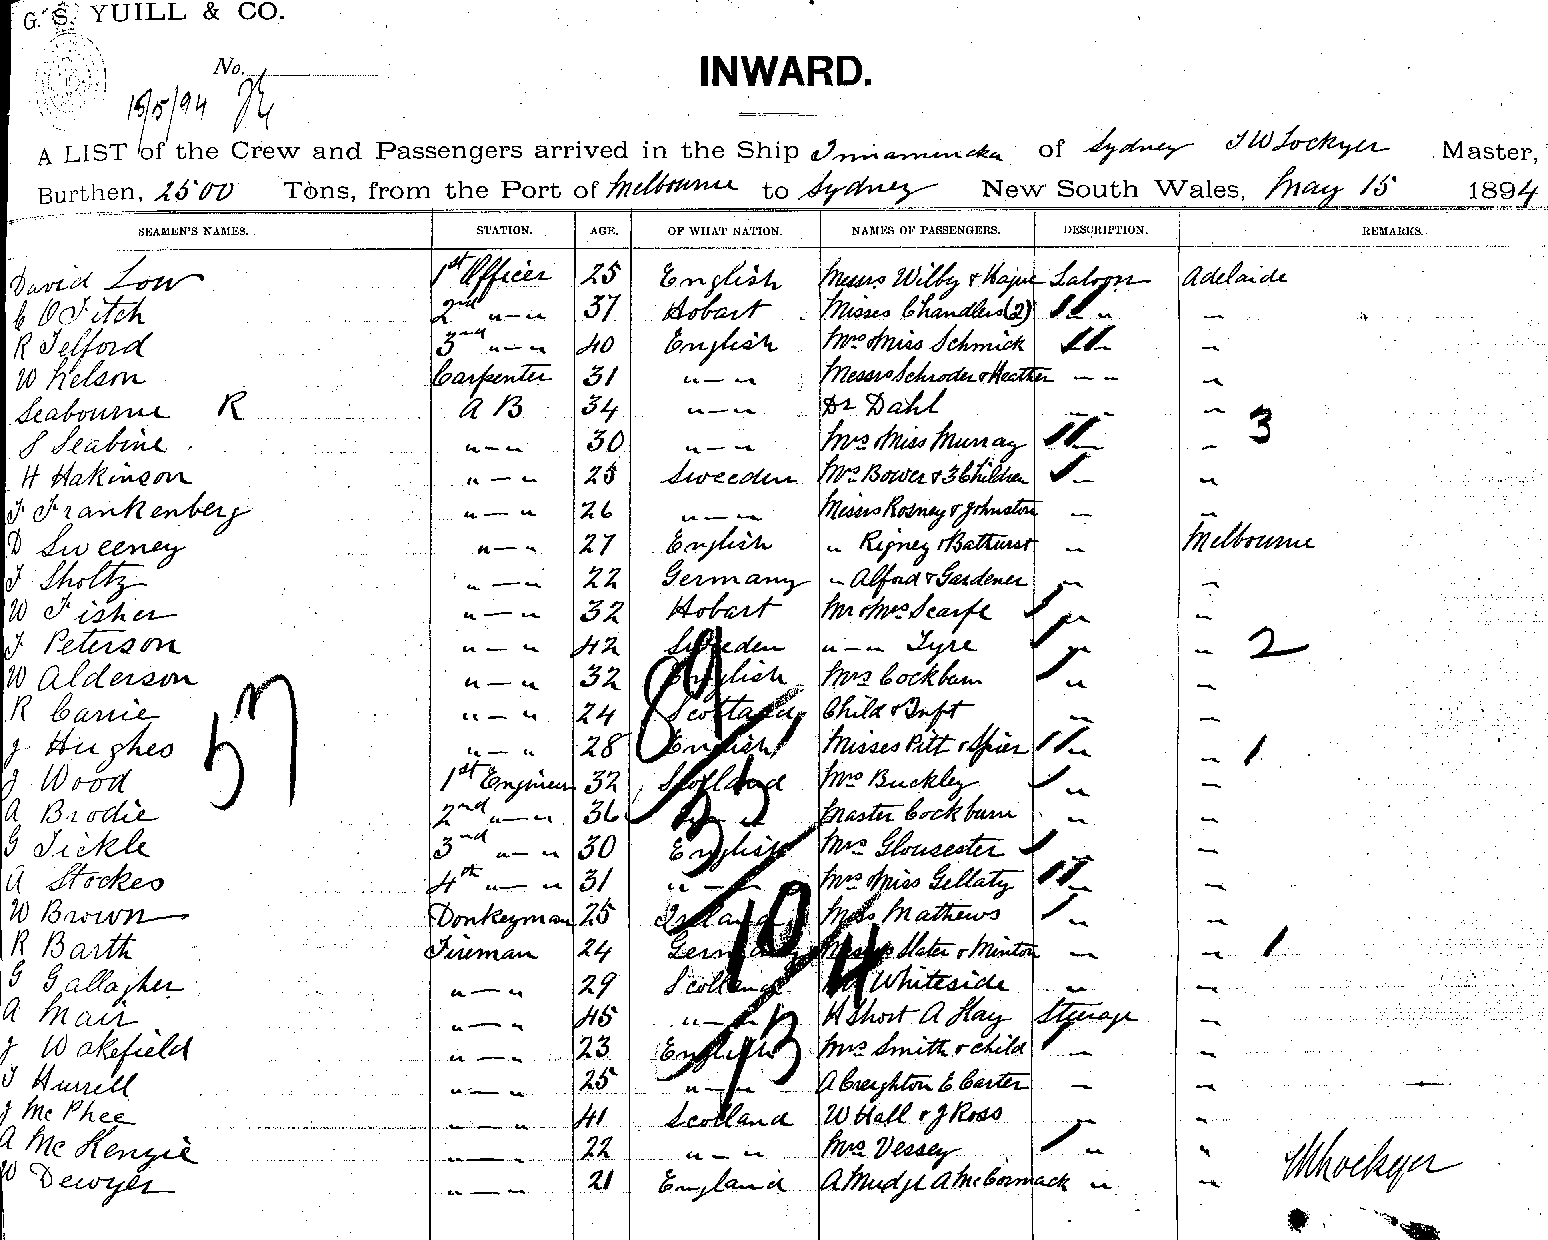 G. S. YUILL & CO.
No.
15/5/94
INWARD.
A LIST of the Crew and Passengers arrived in the Ship Innamincka of Sydney T W Lockyer Master,
Burthen, 2500 Tons, from the Port of Melbourne to Sydney New South Wales, May 15 1894
SEAMEN'S NAMES. STATION. AGE. OF WHAT NATION. NAMES OF PASSENGERS. DESCRIPTION. REMARKS.
David Low 1st Officer 25 English Messrs Wilby & Hague Saloon Adelaide
C O Fitch 2nd " — " 37 Hobart Misses Chandlers (2) " "
R Telford 3rd " — " 40 English Mrs & Miss Schmick " "
W Nelson Carpenter 31 " — " Messrs Schroder & Heather " "
Seabourne R A B 34 " — " Dr Dahl " "
S Seabine " — " 30 " — " Mrs & Miss Murray " " 3
H Hakinson " — " 25 Sweeden Mrs Bower & 3 Children " "
F Frankenberg " — " 26 " — " Misses Rosney & Johnston " "
D Sweeney " — " 27 English " Rigney & Bathurst " Melbourne
F Sholtz " — " 22 Germany " Alford & Gardener " "
W Fisher " — " 32 Hobart Mr & Mrs Scarfe " "
F Peterson " — " 42 Sweeden " — " Tyre " " 2
W Alderson " — " 32 English Mrs Cockburn " "
R Carrie " — " 24 Scotland Child & Inft " "
J Hughes " — " 28 English Misses Pitt & Spier " " 1
J Wood 1st Engineer 32 Scotland Mrs Buckley " "
A Brodie 2nd " — " 36 " — " Master Cockburn " "
G Tickle 3rd " — " 30 English Mrs Gloucester " "
A Stockes 4th " — " 31 " — " Mrs & Miss Gellaty " "
W Brown Donkeyman 25 Ireland Miss Mathews " "
R Barth Fireman 24 Germany Messrs Slater & Minton " " 1
G Gallagher " — " 29 Scotland Whiteside " "
A Mair " — " 45 " — " H Short A Hay Steerage "
J Wakefield " — " 23 English Mrs Smith & child " "
T Hurrell " — " 25 " — " A Creighton E Carter " "
J McPhee " — " 41 Scotland W Hall & J Ross " "
A McKenzie " — " 22 " — " Mrs Vessey " "
W Dewyer " — " 21 England A Mudge A McCormack " "
57
TW Lockyer